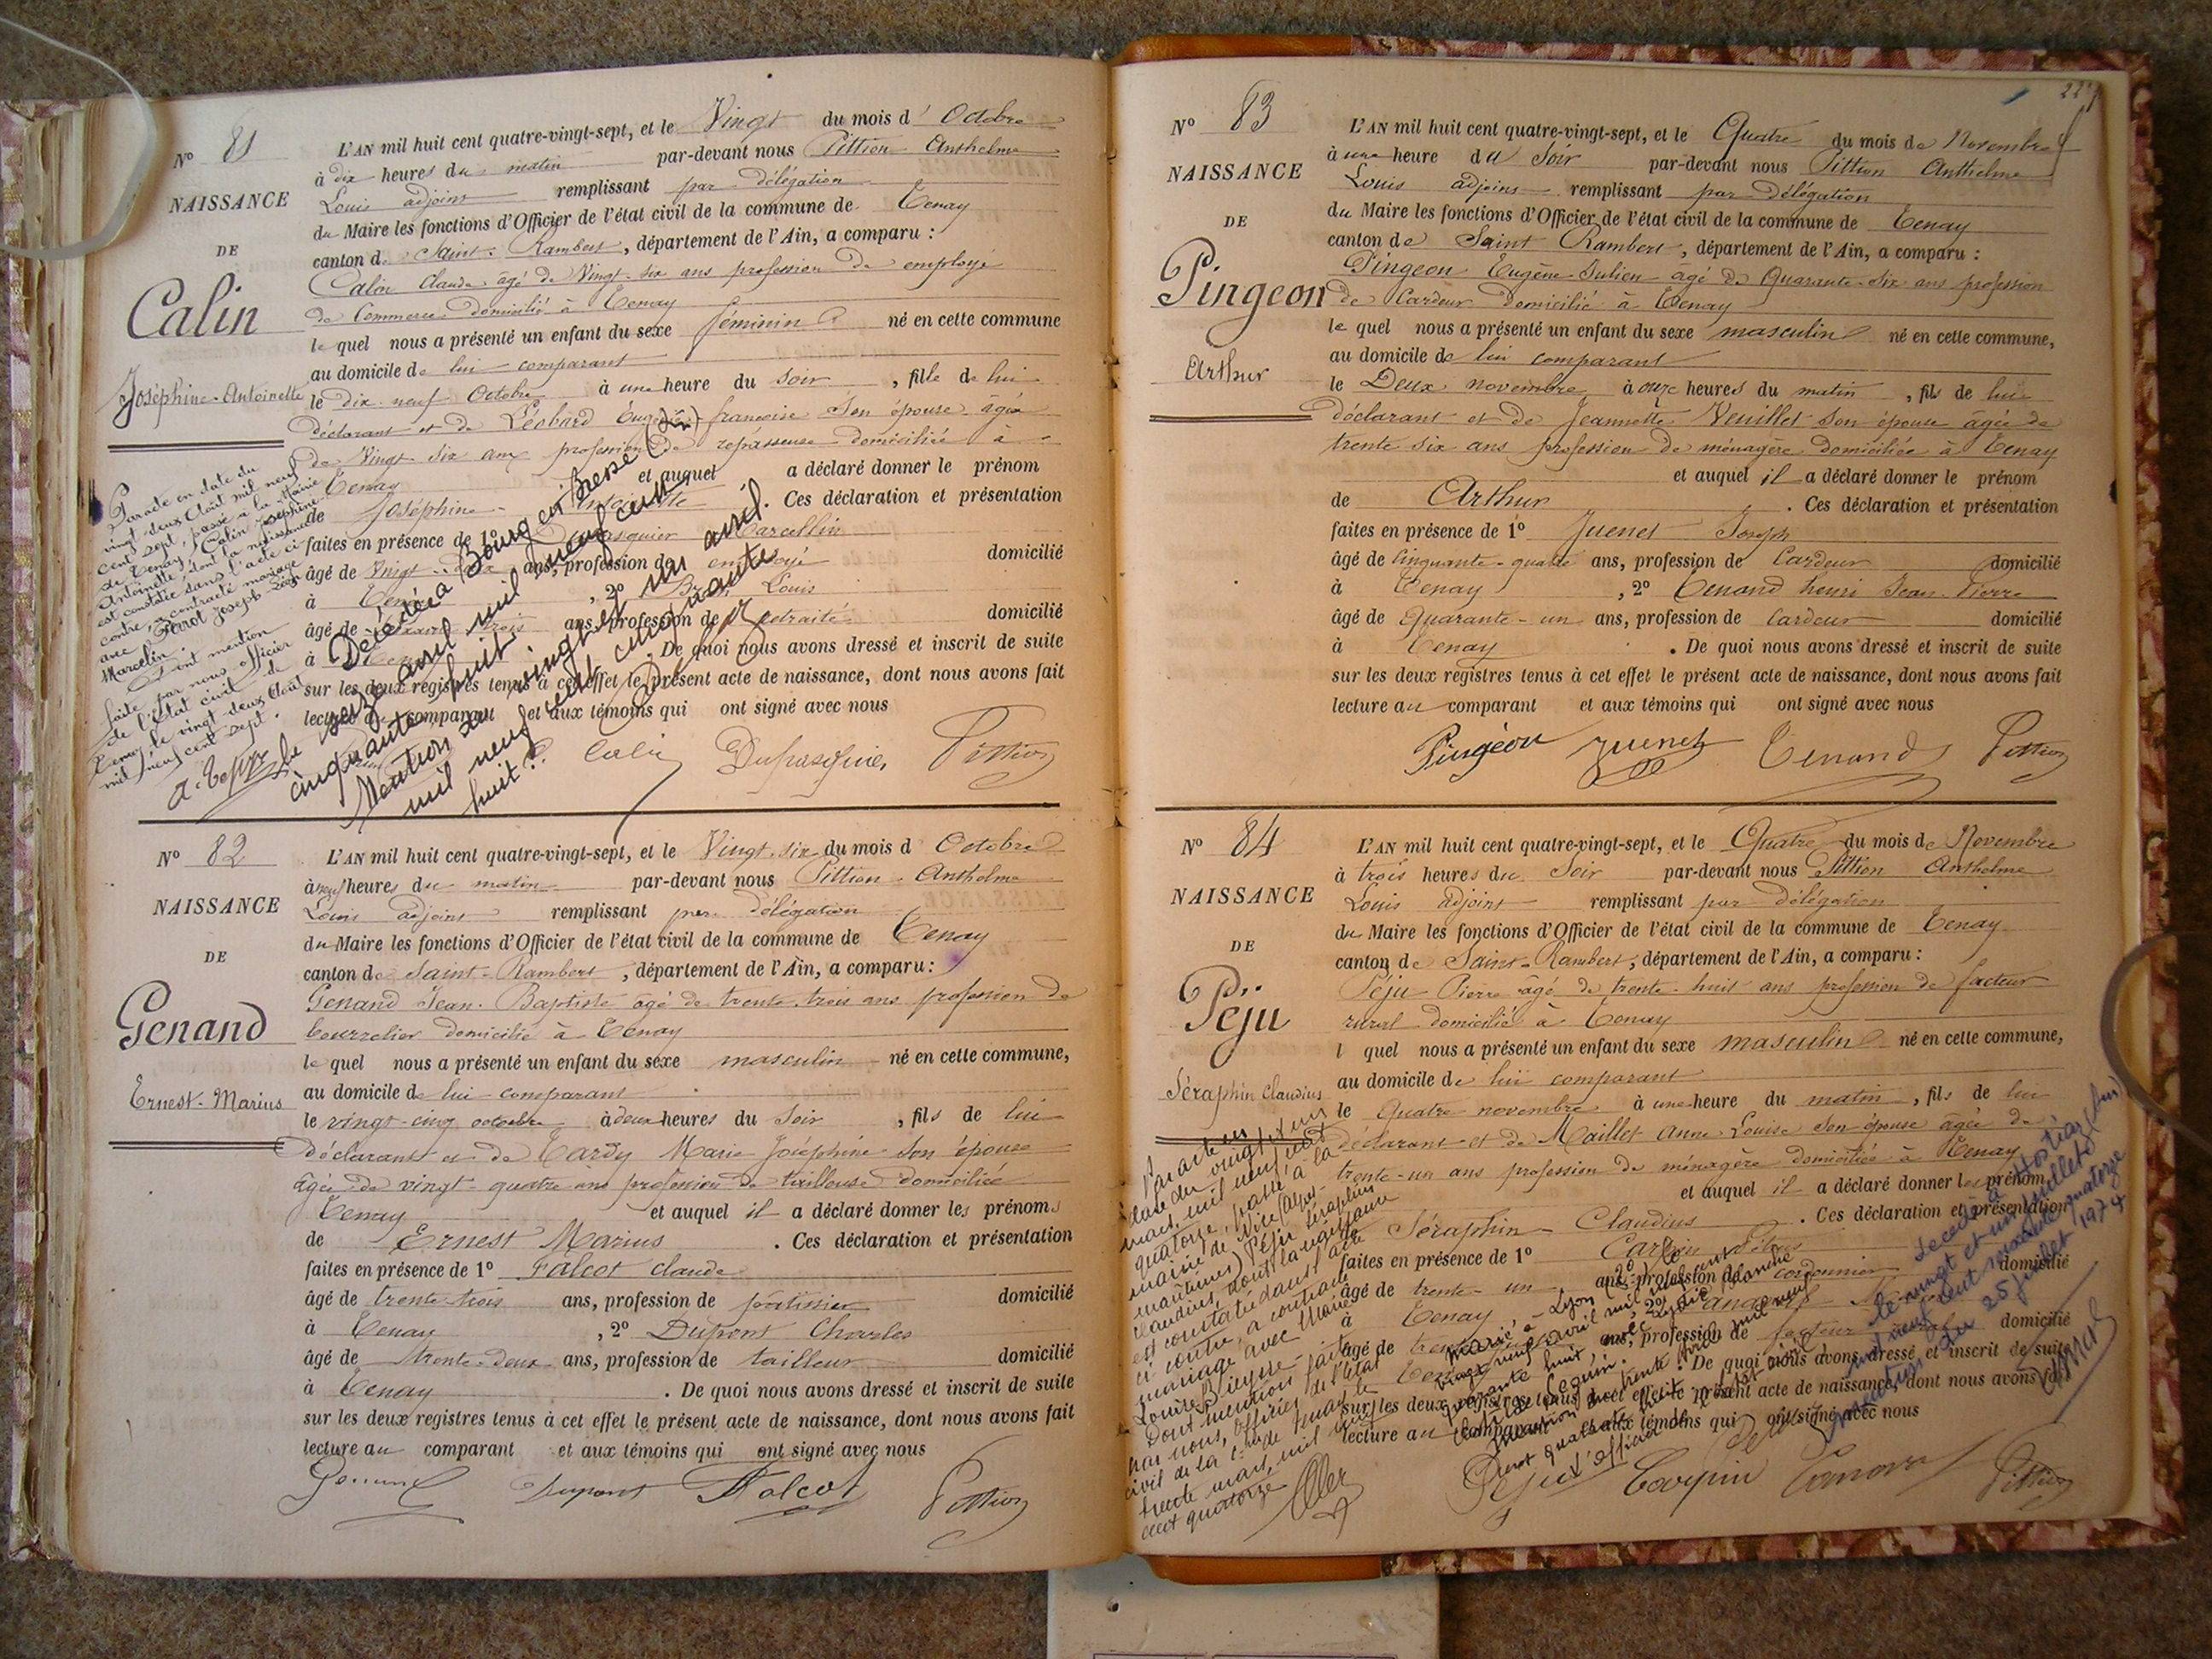 N° 81
NAISSANCE
DE
Calin
Joséphine-Antoinette
L'AN mil huit cent quatre-vingt-sept, et le Vingt du mois d' Octobre
à dix heures du matin par-devant nous Pittion Anthelme
Louis adjoint remplissant par délégation
du Maire les fonctions d'Officier de l'état civil de la commune de Tenay
canton de Saint-Rambert, département de l'Ain, a comparu :
Calin Claude âgé de Vingt-six ans profession de employé
de Commerce domicilié à Tenay
le quel nous a présenté un enfant du sexe féminin né en cette commune
au domicile de lui comparant
le dix neuf Octobre à une heure du soir, fille de lui
déclarant et de Léobard françoise Son épouse âgée
de Vingt six ans profession de repasseuse domiciliée à
Tenay et auquel a déclaré donner le prénom
de Joséphine-Antoinette. Ces déclaration et présentation
faites en présence de 1° Dupasquier Marcellin
âgé de Vingt-deux ans, profession de employé domicilié
à Tenay, 2° Louis
âgé de trois ans, profession de retraité domicilié
à Tenay. De quoi nous avons dressé et inscrit de suite
sur les deux registres tenus à cet effet le présent acte de naissance, dont nous avons fait
lecture au comparant et aux témoins qui ont signé avec nous
Calin Dupasquier Pittion
Par acte en date du
vingt deux Août mil neuf
cent sept, passé à la Mairie
de Tenay, Calin Joséphine
Antoinette, dont la naissance
est constatée dans l'acte ci
contre, a contracté mariage
avec Joseph
Marcelin.
Dont mention
faite par nous officier
de l'état civil de
Tenay, le vingt deux Août
mil neuf cent sept.
Décédée à Bourg en Bresse (Ain)
le seize avril mil neuf cent
cinquante huit.
Mention au vingt et un avril
mil neuf cent cinquante
huit.
N° 82
NAISSANCE
DE
Genand
Ernest-Marius
L'AN mil huit cent quatre-vingt-sept, et le Vingt-six du mois d Octobre
à neuf heures du matin par-devant nous Pittion Anthelme
Louis adjoint remplissant par délégation
du Maire les fonctions d'Officier de l'état civil de la commune de Tenay
canton de Saint-Rambert, département de l'Ain, a comparu :
Genand Jean-Baptiste âgé de trente-trois ans profession de
bourrelier domicilié à Tenay
le quel nous a présenté un enfant du sexe masculin né en cette commune,
au domicile de lui comparant
le vingt-cinq octobre à deux heures du Soir, fils de lui
déclarant et de Tardy Marie Joséphine son épouse
âgée de vingt-quatre ans profession de tailleuse domiciliée
Tenay et auquel il a déclaré donner les prénoms
de Ernest Marius. Ces déclaration et présentation
faites en présence de 1° Falcot Claude
âgé de trente-trois ans, profession de domicilié
à Tenay, 2° Dupont Charles
âgé de trente-deux ans, profession de tailleur domicilié
à Tenay. De quoi nous avons dressé et inscrit de suite
sur les deux registres tenus à cet effet le présent acte de naissance, dont nous avons fait
lecture au comparant et aux témoins qui ont signé avec nous
Genand Dupont Falcot Pittion
N° 83
NAISSANCE
DE
Pingeon
Arthur
L'AN mil huit cent quatre-vingt-sept, et le Quatre du mois de Novembre
à une heure du Soir par-devant nous Pittion Anthelme
Louis adjoint remplissant par délégation
du Maire les fonctions d'Officier de l'état civil de la commune de Tenay
canton de Saint Rambert, département de l'Ain, a comparu :
Pingeon Eugène-Julien âgé de Quarante-Six ans profession
de Cardeur domicilié à Tenay
le quel nous a présenté un enfant du sexe masculin né en cette commune,
au domicile de lui comparant
le Deux novembre à onze heures du matin, fils de lui
déclarant et de Jeannette Veuillet son épouse âgée de
trente six ans profession de ménagère domiciliée à Tenay
et auquel il a déclaré donner le prénom
de Arthur. Ces déclaration et présentation
faites en présence de 1° Juenet Joseph
âgé de Cinquante-quatre ans, profession de Cardeur domicilié
à Tenay, 2° Tenand henri Jean-Pierre
âgé de Quarante-un ans, profession de Cardeur domicilié
à Tenay. De quoi nous avons dressé et inscrit de suite
sur les deux registres tenus à cet effet le présent acte de naissance, dont nous avons fait
lecture au comparant et aux témoins qui ont signé avec nous
Pingeon Juenet Tenand Pittion
N° 84
NAISSANCE
DE
Péju
Séraphin Claudius
L'AN mil huit cent quatre-vingt-sept, et le Quatre du mois de Novembre
à trois heures du Soir par-devant nous Pittion Anthelme
Louis adjoint remplissant par délégation
du Maire les fonctions d'Officier de l'état civil de la commune de Tenay
canton de Saint-Rambert, département de l'Ain, a comparu :
Péju Pierre âgé de trente-huit ans profession de facteur
rural domicilié à Tenay
l quel nous a présenté un enfant du sexe masculin né en cette commune,
au domicile de lui comparant
le Quatre novembre à une heure du matin, fils de lui
déclarant et de Maillet Anne-Louise Son épouse âgée de
trente-un ans profession de ménagère domiciliée à Tenay
et auquel il a déclaré donner les prénom
Séraphin-Claudius. Ces déclaration et présentation
faites en présence de 1°
âgé de trente-un ans, profession de cordonnier domicilié
à Tenay, 2°
âgé de ans, profession de facteur domicilié
Tenay. De quoi nous avons dressé et inscrit de suite
sur les deux registres tenus à cet effet le présent acte de naissance, dont nous avons fait
lecture au comparant et aux témoins qui ont signé avec nous
Péju Pittion
Par acte en
date du vingt huit
mars, mil neuf cent
quatorze, passé à la
mairie de Nice (Alpes-
maritimes) Péju Séraphin
Claudius, dont la naissance
est constatée dans l'acte
ci contre, a contracté
mariage avec Marie
Louise
Dont mention faite
par nous, officier de l'état
civil de la Cne de Tenay le
trente mars, mil neuf
cent quatorze
Marié à Lyon
Décédé à Hostiaz (Ain)
le vingt et un juillet
mil neuf cent soixante quatorze
25 juillet 1974